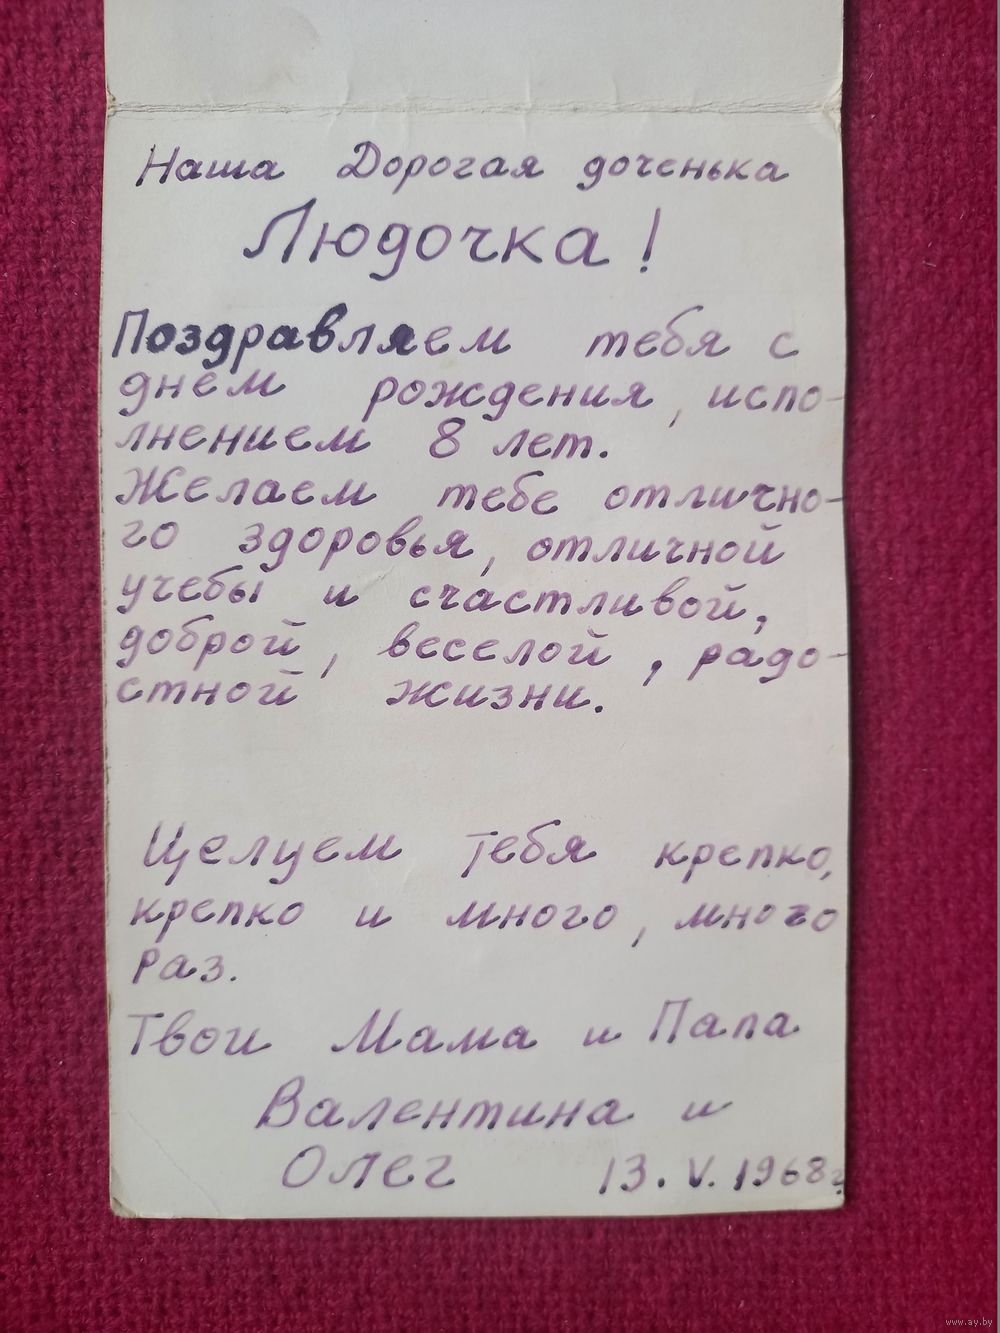 Наша Дорогая доченька
Людочка!
Поздравляем тебя с
днем рождения, испо-
лнением 8 лет.
Желаем тебе отлично-
го здоровья, отличной
учебы и счастливой,
доброй, веселой, радо-
стной жизни.
Целуем тебя крепко,
крепко и много, много
раз.
Твои Мама и Папа
Валентина и
Олег 13.V.1968г.
www.ay.by